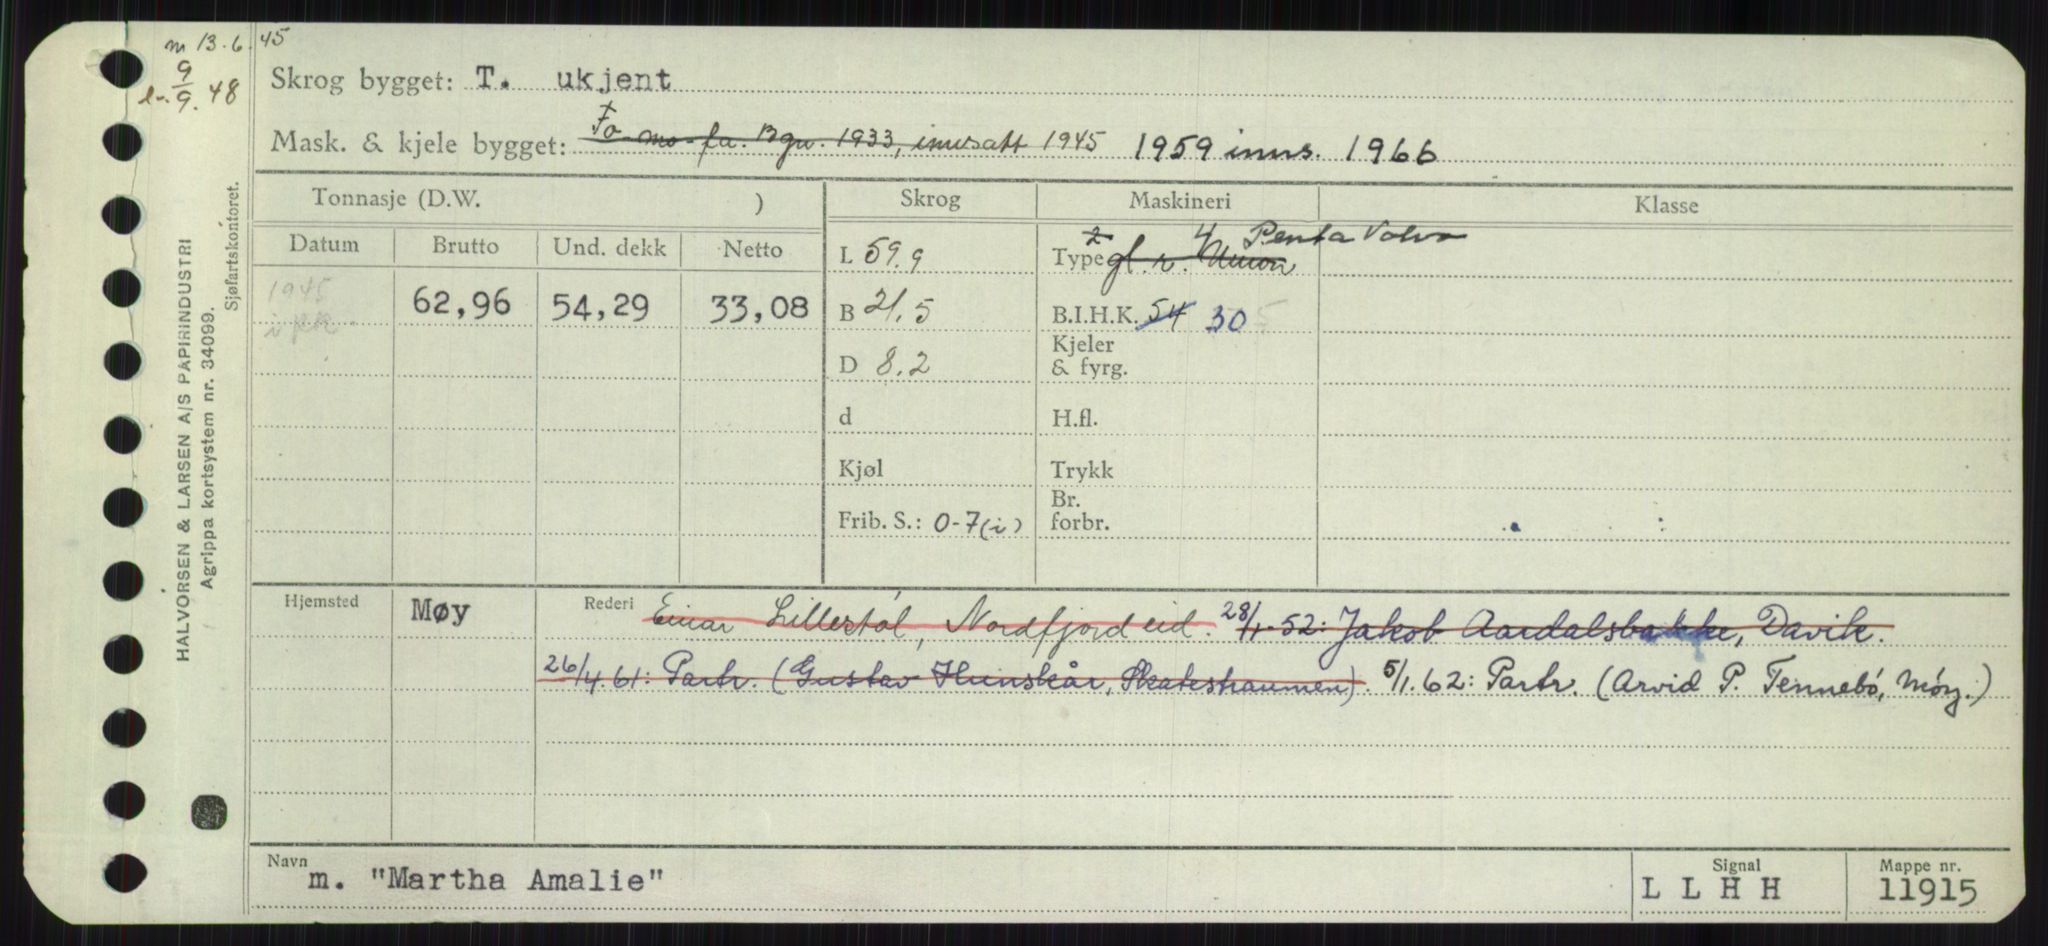 m 13.6.45
l. 9/9. 48
Skrog bygget: T. ukjent
Mask. & kjele bygget: Fa. mo. fa. Bgn. 1933, innsatt 1945 1959 inns. 1966
Tonnasje (D.W. )
Skrog
Maskineri
Klasse
Datum
Brutto
Und. dekk
Netto
1945
62,96
54,29
33,08
L 59.9
B 21.5
D 8.2
d
Kjøl
Frib. S.: 0-7(i)
2 4 Penta Volvo
Type gl. r. Union
B.I.H.K. 54 30
Kjeler
& fyrg.
H.fl.
Trykk
Br.
forbr.
Hjemsted
Møy
Rederi Einar Lillestøl, Nordfjordeid. 28/1-52: Jakob Aardalsbakke, Davik.
26/4.61: Partr. (Gustav Hunskår, Skatestraumen). 5/1.62: Partr. (Arvid P. Tennebø, Måøy.)
Navn
m. "Martha Amalie"
Signal
L L H H
Mappe nr.
11915
HALVORSEN & LARSEN A/S PAPIRINDUSTRI
Agrippa kortsystem nr. 34099.
Sjøfartskontoret.